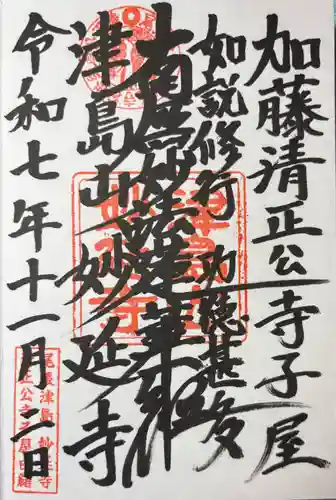 加藤清正公寺子屋
如説修行 功徳甚多
南無妙法蓮華経
津島山 妙延寺
令和七年十一月二日